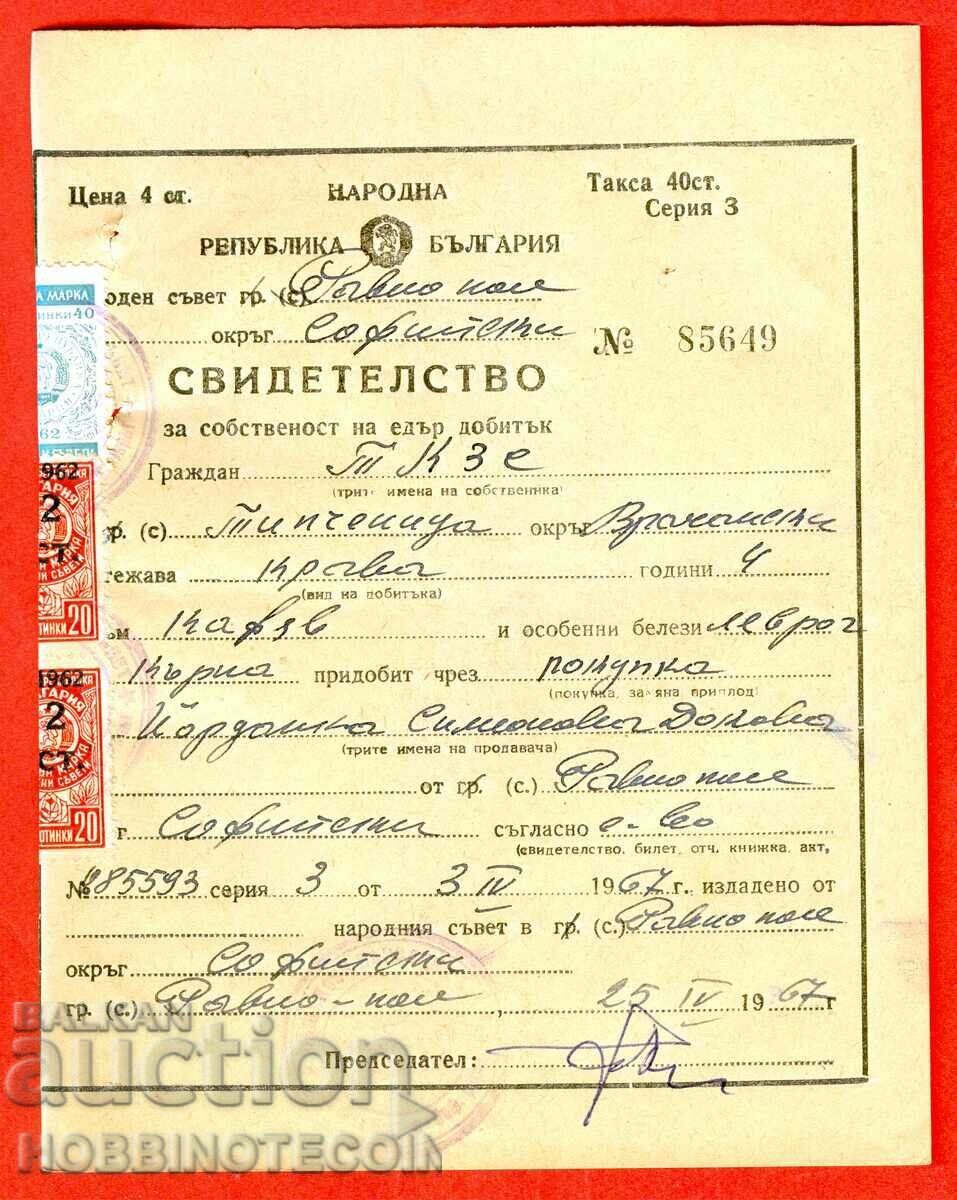 Цена 4 ст. НАРОДНА Такса 40ст.
Серия 3
РЕПУБЛИКА БЪЛГАРИЯ
оден съвет гр. (с) Равно поле
окръг Софийски № 85649
СВИДЕТЕЛСТВО
за собственост на едър добитък
Граждан ТКЗС
(трите имена на собственика)
гр. (с) Типченица окръг Врачански
тежава Крава години 4
(вид на добитъка)
ъм Кафяв и особенни белези лев рог
кърна придобит чрез покупка
(покупка, замяна приплод)
Йорданка Симеонова
(трите имена на продавача)
от гр. (с.) Равно поле
г Софийски съгласно с-во
(свидетелство, билет, отч. книжка, акт,
№ 085593 серия 3 от 3 IV 1967 г. издадено от
народния съвет в гр. (с.) Равно поле
окръг Софийски
гр. (с.) Равно-поле, 25 IV 1967 г
Председател:
А МАРКА
ТИНКИ 40
62
1962
ГАРИЯ
2
СТ.
ОТИНКИ 20
1962
ГАРИЯ
2
СТ.
ОТИНКИ 20
BALKAN
auction
HOBBINOTECOIN